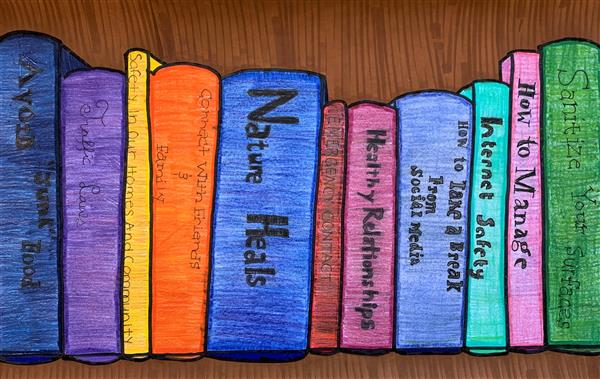 Avoid "Junk" Food
Traffic Laws
Safety In Our Homes And Community
Connect With Friends
&
Family
Nature Heals
EMERGENCY CONTACT
Healthy Relationships
How to Take a Break
From
Social Media
Internet Safety
How to Manage
Sanitize Your Surfaces